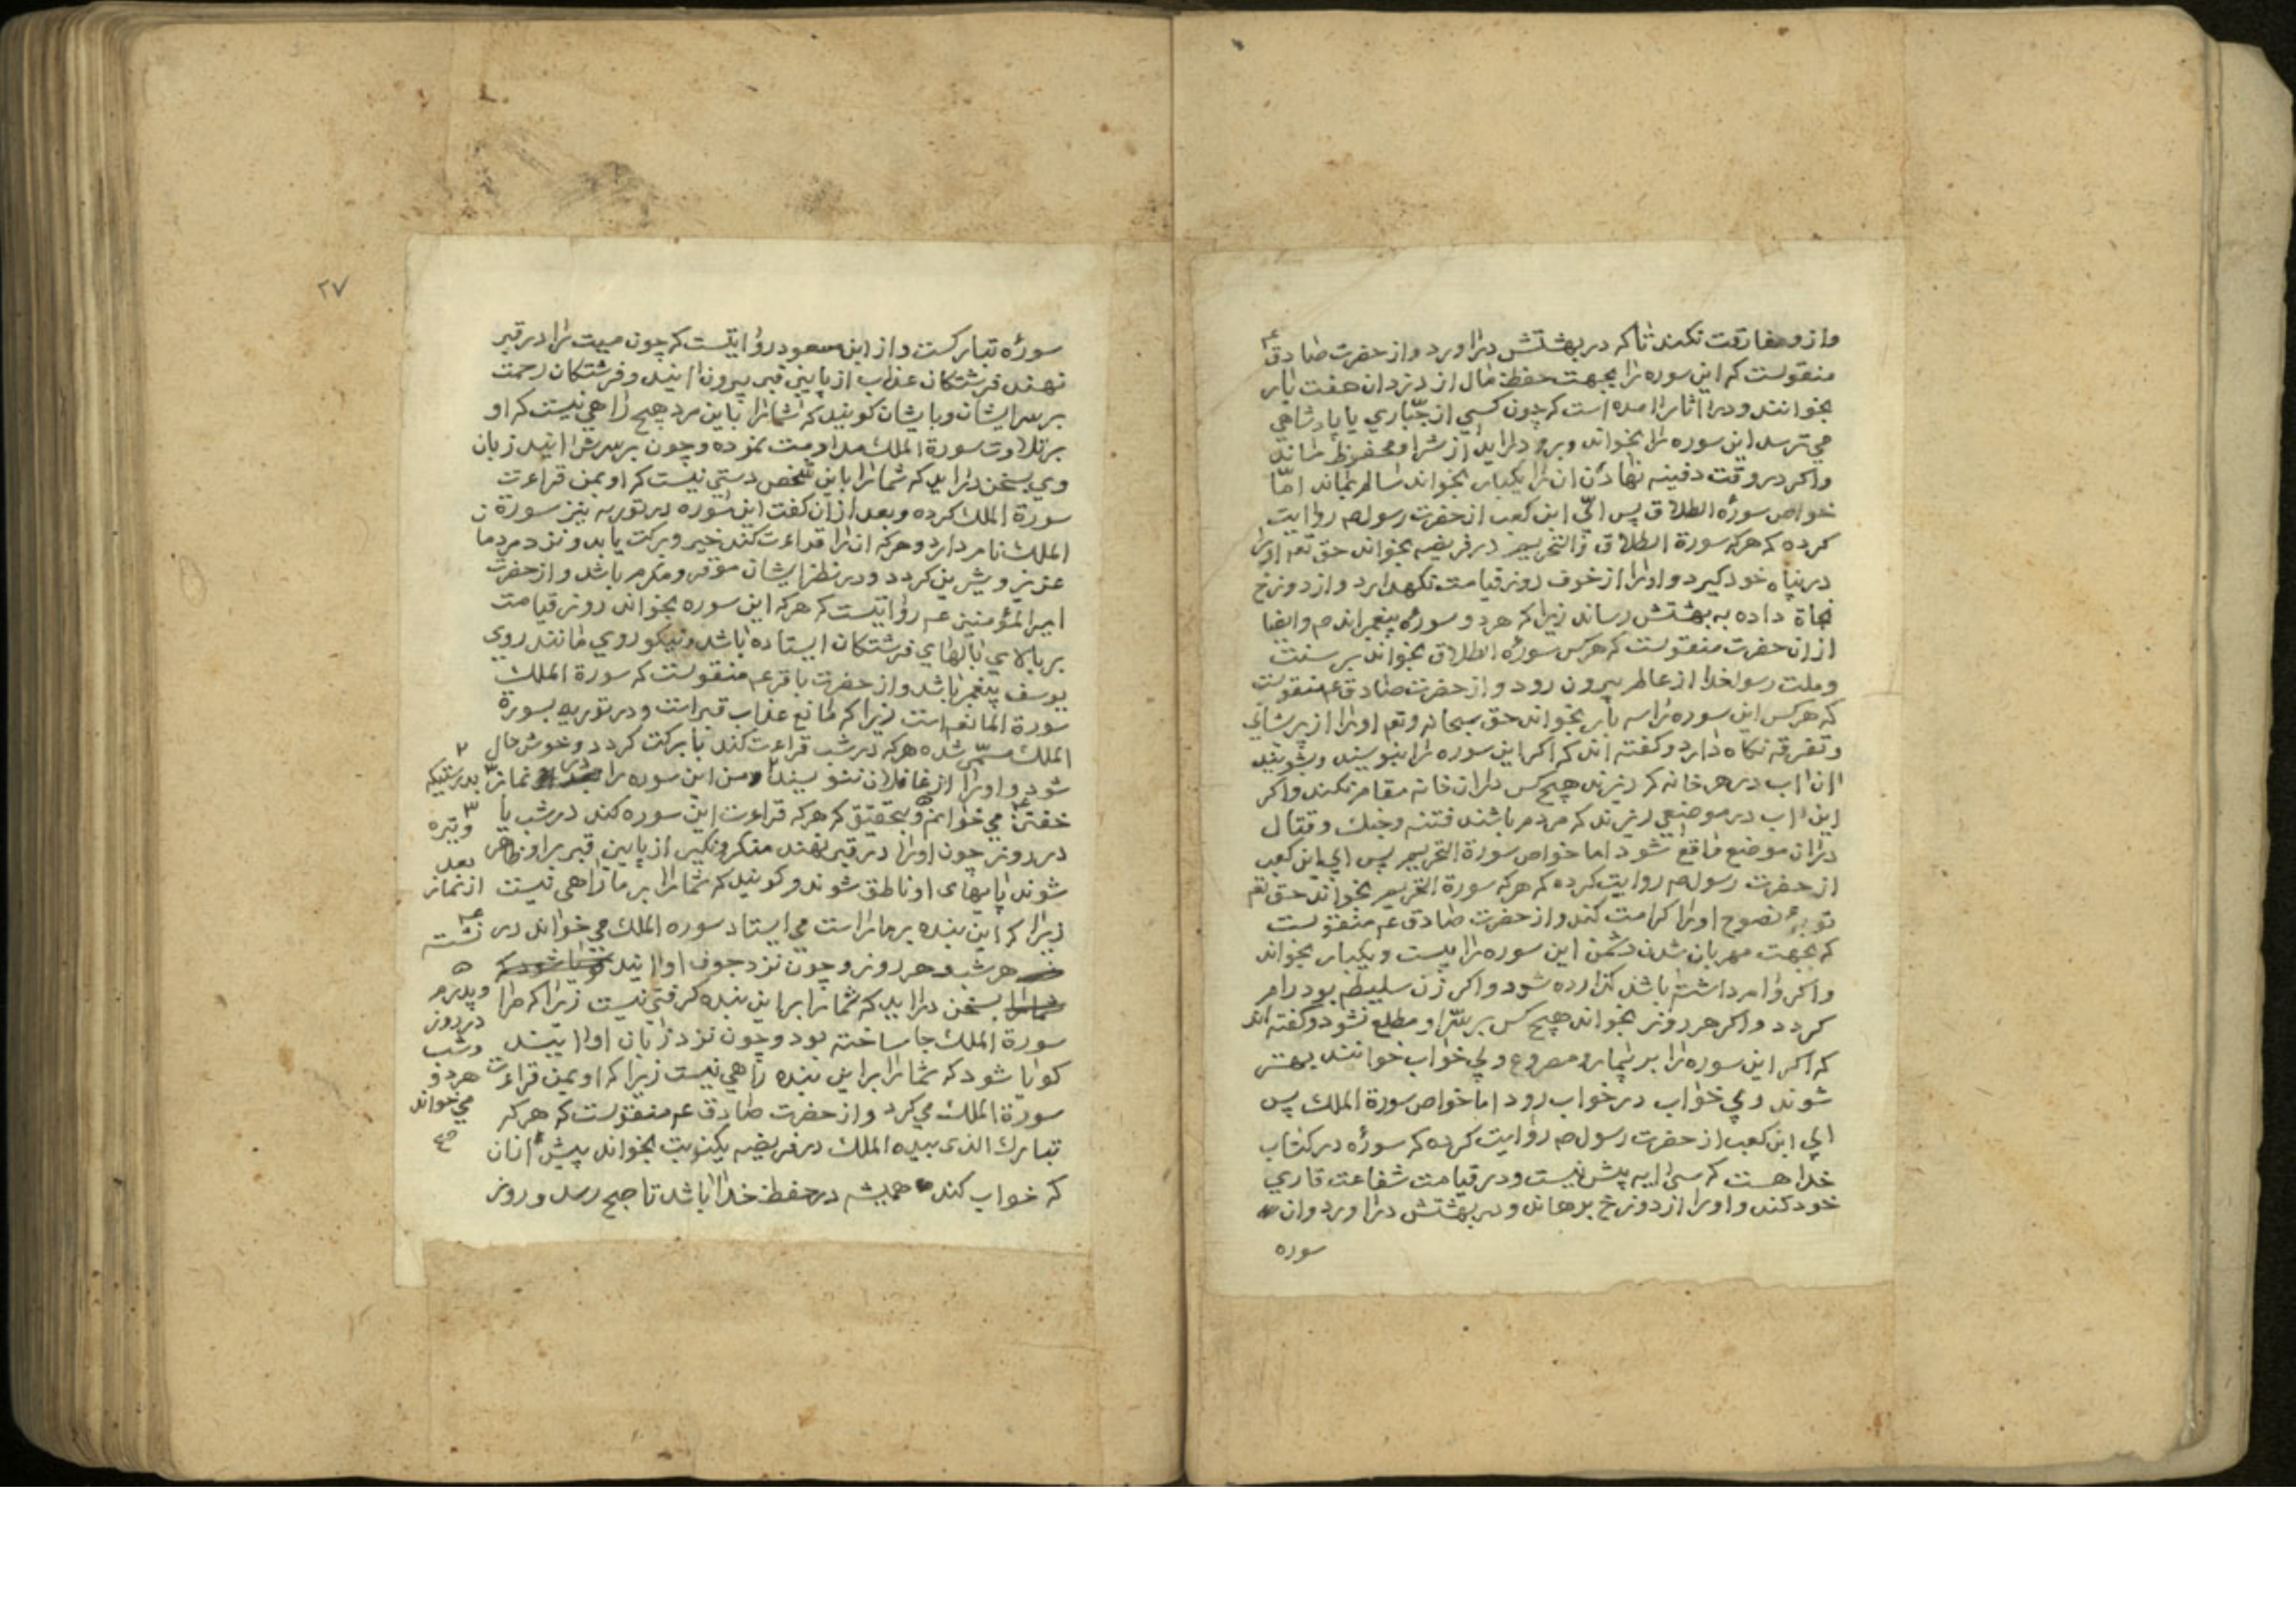 واز ومفارقت نکند تا که در بهشتش درآورد واز حضرت صادق ع
منقولست که این سوره را بجهت حفظ مال از دزدان هفت بار
بخوانند ودر آثار آمده است که چون کسی از جبّاری یا پادشاهی
می ترسد این سوره را بخواند وبرو درآید از شر او محفوظ ماند
واکر در وقت دفینه نهادن ان را یکبار بخواند سالم بماند امّا
خواص سورهٔ الطلاق پس ابیّ ابن کعب از حضرت رسول ص روایت
کرده که هرکه سورة الطلاق والتحریم در فریضه بخواند حق تعم اورا
در پناه خود کیرد واورا از خوف روز قیامت نکهدارد واز دوزخ
نجاة داده به بهشتش رساند زیرا که هر دو سورهٔ پیغمبراند ص وایضا
از ان حضرت منقولست که هرکس سورهٔ الطلاق بخواند بر سنت
وملت رسولخدا از عالم بیرون رود واز حضرت صادق ع منقولست
که هرکس این سوره را سه بار بخواند حق سبحانه وتعم اورا از پریشانی
وتفرقه نکاه دارد وکفته اند که اکر این سوره را بنویسند وبشویند
ان آب در هر خانه که ریزند هیچ کس در ان خانه مقام نکند واکر
این آب در موضعی ریزند که مردم باشند فتنه وجنك وقتال
در ان موضع واقع شود اما خواص سورة التحریم پس ابی ابن کعب
از حضرت رسول ص روایت کرده که هرکه سورة التحریم بخواند حق تعم
توبهٔ نصوح اورا کرامت کند واز حضرت صادق ع منقولست
که بجهت مهربان شدن دشمن این سوره را بیست ویکبار بخواند
واکر وام داشته باشد کذارده شود واکر زن سلیطه بود رام
کردد واکر هر روز بخواند هیچ کس بر سّر او مطلع نشود وکفته اند
که اکر این سوره را بر بیمار ومصروع وبی خواب خوانند بهتر
شوند وبی خواب در خواب رود اما خواص سورة الملك پس
ابی ابن کعب از حضرت رسول ص روایت کرده که سورهٔ در کتاب
خدا هست که سی آیه پیش نیست ودر قیامت شفاعت قاری
خود کند واورا از دوزخ برهاند ودر بهشتش درآورد وان
سوره
۲۷
سورهٔ تبارکست واز ابن مسعود روایتست که چون میت را در قبر
نهند فرشتکان عذاب از پایین قبر بیرون آیند وفرشتکان رحمت
بر سر ایشان وبایشان کویند که شمارا باین مرد هیچ راهی نیست که او
بر تلاوت سورة الملك مداومت نموده وچون بر سرش آیند زبان
وی بسخن درآید که شمارا باین شخص دستی نیست که او بمن قراءت
سورة الملك کرده وبعد از ان کفت این سوره در توریه نیز سورة
الملك نام دارد وهرکه ان را قراءت کند خیر وبرکت یابد ونزد مردمان
عزیز وشیرین کردد ودر نظر ایشان موقر ومکرم باشد واز حضرت
امیرالمؤمنین ع روایتست که هرکه این سوره بخواند روز قیامت
بر بالای بالهای فرشتکان ایستاده باشد ونیکو روی مانند روی
یوسف پیغمبر باشد واز حضرت باقر ع منقولست که سورة الملك
سورة المانعه است زیرا که مانع عذاب قبر است ودر توریه بسورة
الملك مسمّی شده هرکه در شب قراءت کند با برکت کردد وخوش حال
شود واورا از غافلان ننویسند ۲ ومن این سوره را در نماز ۳
خفتن ۴ می خوانم ۵ وبتحقیق که هرکه قراءت این سوره کند در شب یا
در روز چون اورا در قبر نهند منکر ونکیر از پایین قبر بر او ظاهر
شوند پایهای او ناطق شوند وکویند که شمارا بر ما راهی نیست
زیرا که این بنده بر ما راست می ایستاد سوره الملك می خواند در
هر شب وهر روز وچون نزد جوف او آیند
بسخن درآید که شمارا بر این بنده کرفتی نیست زیرا که مرا
سورة الملك جا ساخته بود وچون نزد زبان او آیند
کویا شود که شمارا بر این بنده راهی نیست زیرا که او بمن قراءت
سورة الملك می کرد واز حضرت صادق ع منقولست که هرکه
تبارك الذی بیده الملك در فریضه یکنوبت بخواند پیش از ان
که خواب کند همیشه در حفظ خدا باشد تا صبح رسد وروز
۲
بدرستیکه
۳
وتیره
بعد
از نماز
۴
نشسته
۵
وپدرم
در روز
وشب
هر دو
می خواند
صح